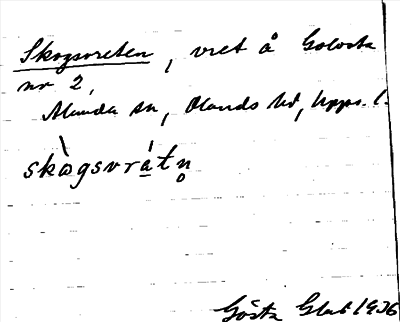 Skogsvreten, vret å Golvsta
nr 2,
Almunda sn, Olands hd, Upps. l.
skògsvrátn̥
Gösta Glad 1936